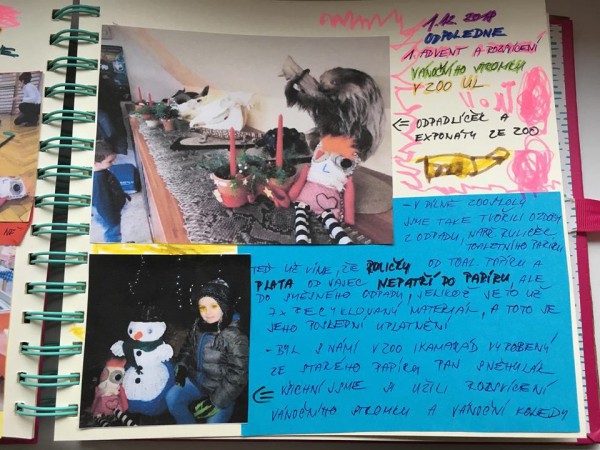 1.12.2019
ODPOLEDNE
1. ADVENT A ROZSVÍCENÍ
VÁNOČNÍHO STROMKU
V ZOO ÚL
ODPADLÍČEK A
EXPONÁTY ZE ZOO
- V DÍLNĚ ZOOŠKOLY
JSME TAKÉ TVOŘILI OZDOBY
Z ODPADU, NAPŘ. RULIČEK
TOALETNÍHO PAPÍRU
TEĎ UŽ VÍME, ŽE RULIČKY OD TOAL. PAPÍRU A
PLATA OD VAJEC NEPATŘÍ DO PAPÍRU, ALE
DO SMĚSNÉHO ODPADU, JELIKOŽ JE TO UŽ
7X RECYKLOVANÝ MATERIÁL, A TOTO JE
JEHO POSLEDNÍ UPLATNĚNÍ
- BYL S NÁMI V ZOO I KAMARÁD VYROBENÝ
ZE STARÉHO PAPÍRU PAN SNĚHULÁK
VŠICHNI JSME SI UŽILI ROZSVÍCENÍ
VÁNOČNÍHO STROMKU A VÁNOČNÍ KOLEDY